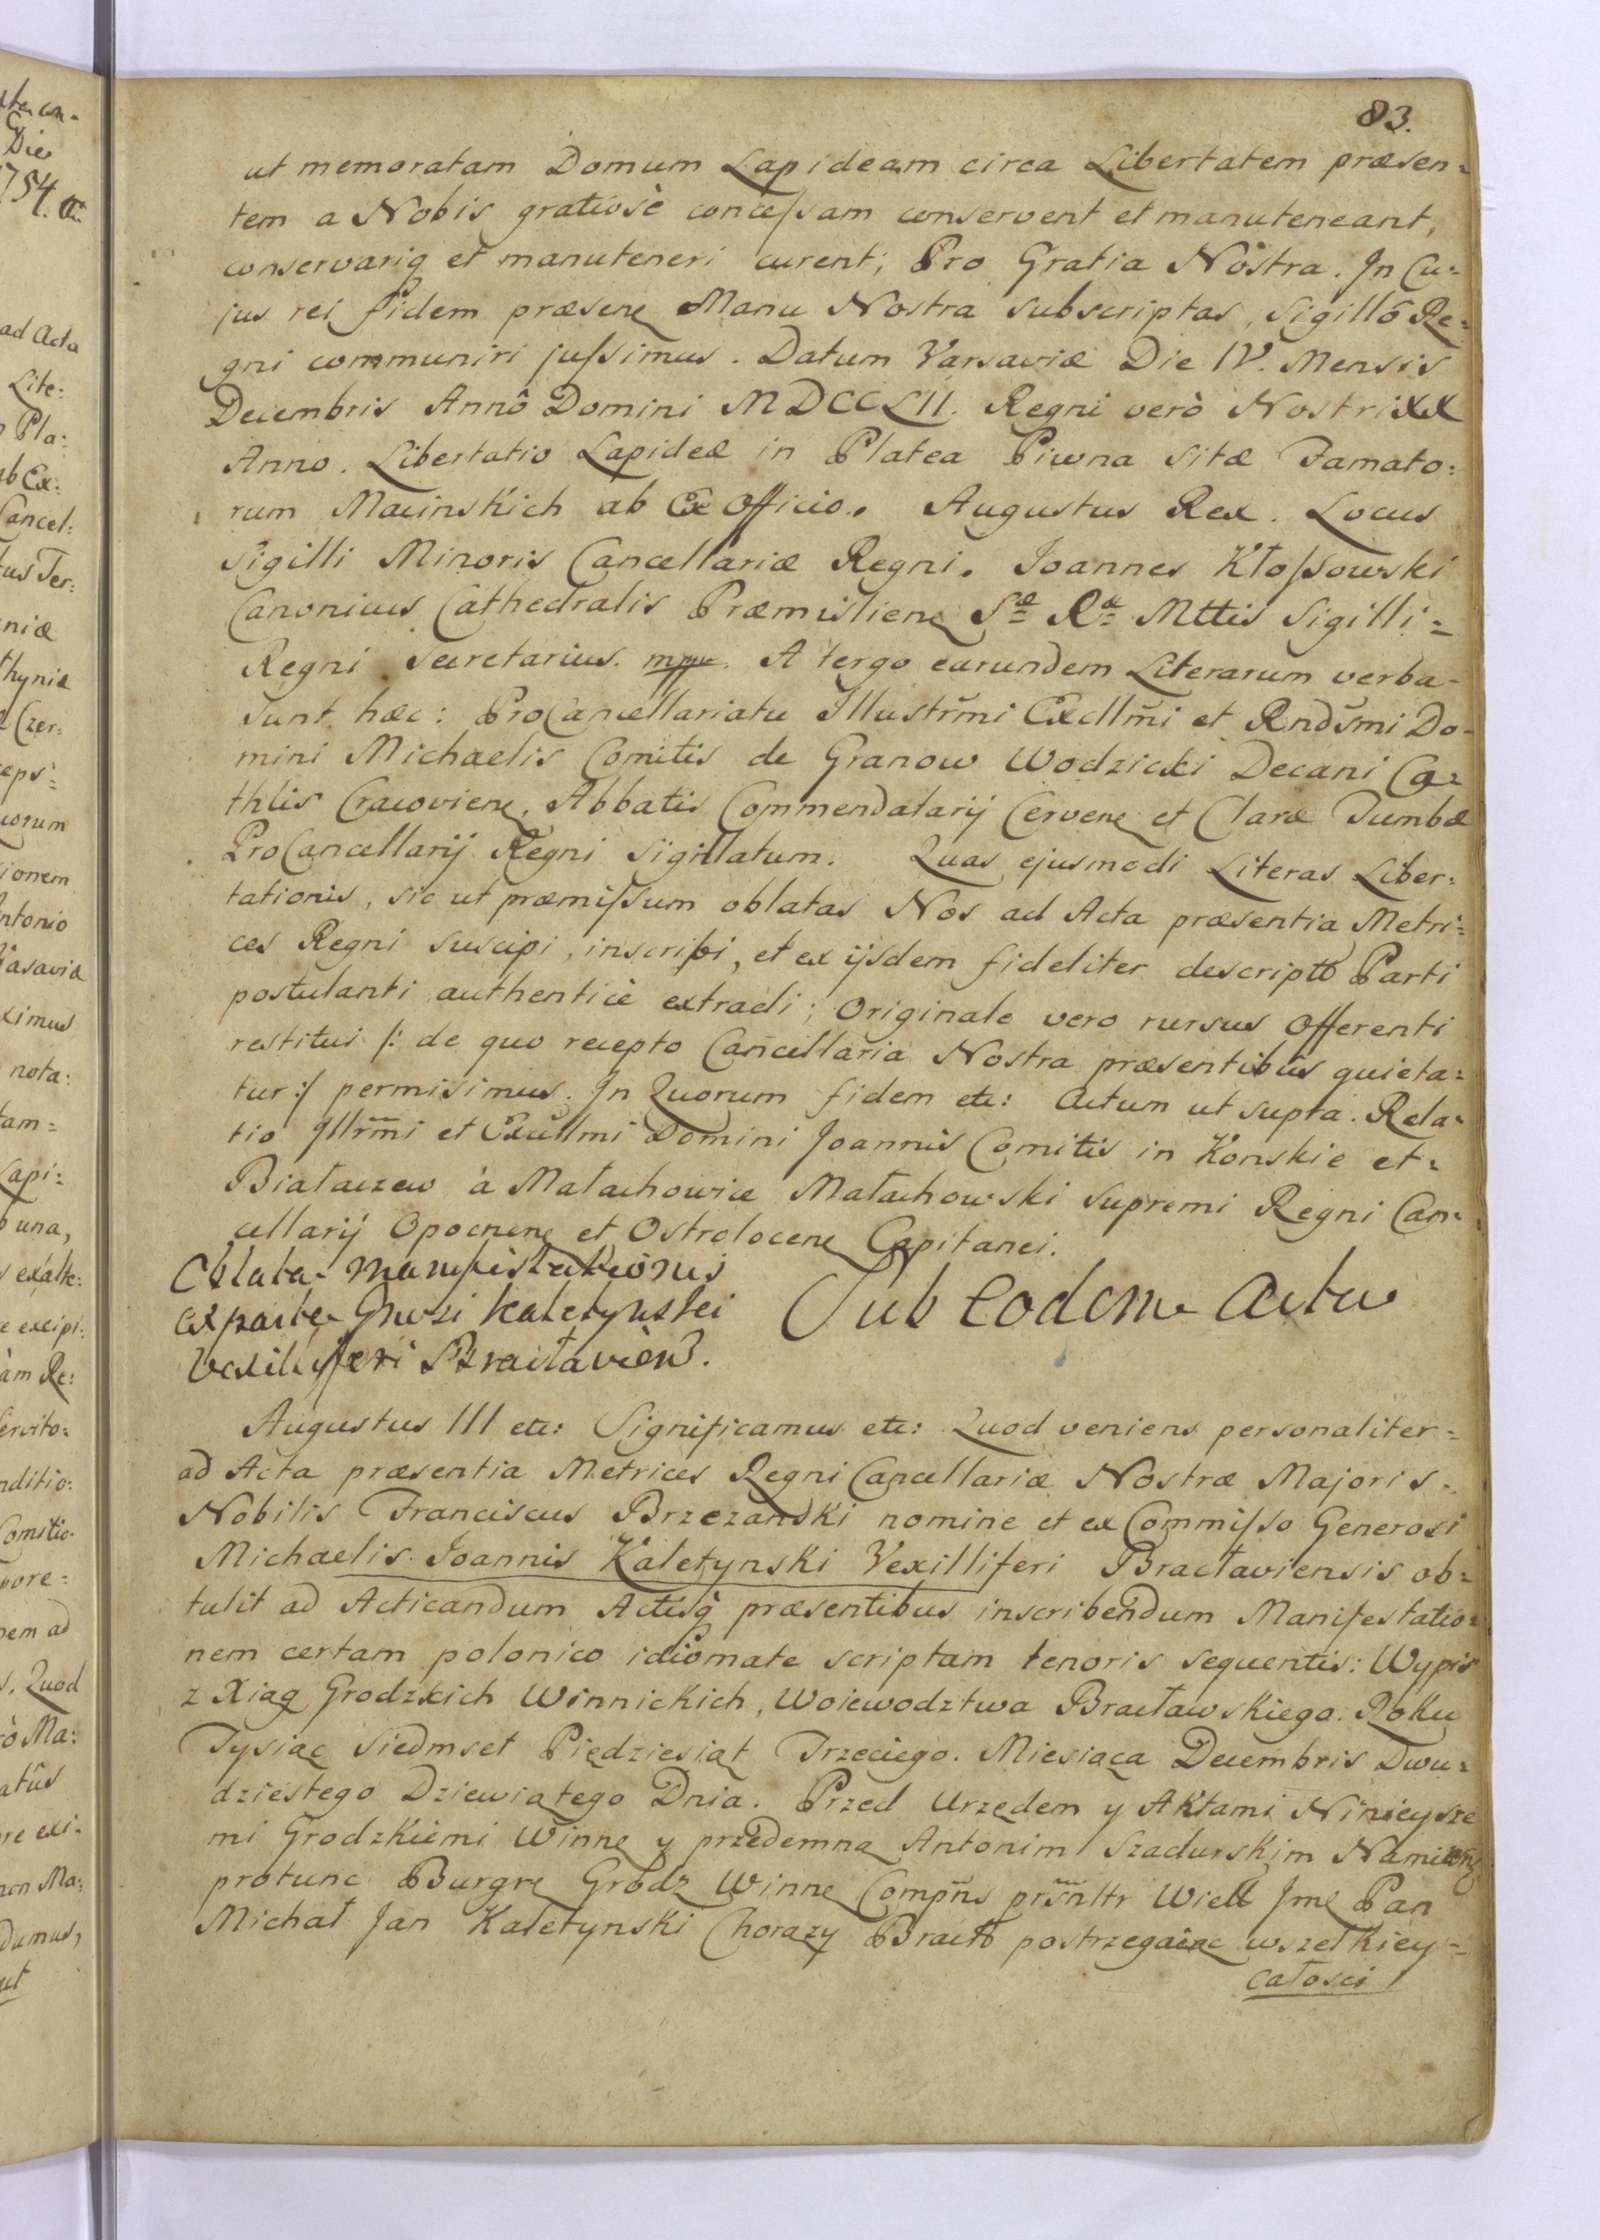 83.
ut memoratam Domum Lapideam circa Libertatem præsen=
tem a Nobis gratiosè concessam conservent et manuteneant,
conservariq et manuteneri curent; Pro Gratia Nostra. In Cu=
jus rei fidem præsens Manu Nostra subscriptas, Sigillô Re=
gni communiri jussimus. Datum Varsaviæ Die IV. Mensis
Decembris Annô Domini MDCCLII. Regni verò Nostri XX
Anno. Libertatio Lapideæ in Platea Piwna sitæ Famato=
rum Macinskich ab Ex Officio. Augustus Rex. Locus
Sigilli Minoris Cancellariæ Regni. Joannes Kłossowski
Canonicus Cathedralis Præmisliens Sæ Ræ Mttis Sigilli=
Regni Secretarius. mpp. A tergo earundem Literarum verba-
sunt hæc: ProCancellariatu Illustrm̃i Excllm̃i et Rnds̃mi Do-
mini Michaelis Comitis de Granow Wodzicki Decani Ca=
thlis Cracoviens, Abbatis Commendatarij Cervens et Claræ Tumbæ
ProCancellarij Regni Sigillatum. Quas ejusmodi Literas Liber=
tationis, sic ut præmissum oblatas Nos ad Acta præsentia Metri=
ces Regni suscipi, inscribi, et ex ijsdem fideliter descripto Parti
postulanti authenticè extradi; Originale vero rursus Offerenti
restitui /: de quo recepto Cancellaria Nostra præsentibûs quieta=
tur :/ permisimus. In Quorum fidem etc: Actum ut supra. Rela=
tio Illrm̃i et Excllmi Domini Joannis Comitis in Konskie et=
Białaczew à Małachowice Małachowski Supremi Regni Can=
cellarij Opocnens et Ostrolocens Capitanei.
Oblata Manifestationis
ex parte Gnosi Kaletynski
Vexilliferi Bracłaviens.
Sub eodem Actu
Augustus III etc: Significamus etc: Quod veniens personaliter=
ad Acta præsentia Metrices Regni Cancellariæ Nostræ Majoris.
Nobilis Franciscus Brzezanski nomine et ex Commisso Generosi
Michaelis Joannis Kaletynski Vexilliferi Bracłaviensis ob=
tulit ad Acticandum Actisq præsentibus inscribendum Manifestatio=
nem certam polonico idiomate scriptam tenoris sequentis: Wypis
z Xiąg Grodzkich Winnickich, Woiewodztwa Bracławskiego. Roku
Tysiąc Siedmset Pięдziesiąt Trzeciego. Miesiąca Decembris Dwu=
dziestego Dziewiątego Dnia. Przed Urzędem y Aktami Ninieysze
mi Grodzkiemi Winne y przedemną Antonim Szadurskim
protunc Burgre Grodz Winne Compñs prs̃nltr Wiel Jmę Pan
Michał Jan Kaletynski Chorąży Bracło postrzegaiąc wszelkiey=
całosci